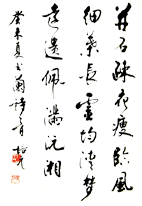 并石疎花瘦臨風
細葉長靈均清夢
遠遺佩滿沅湘
癸未夏書蘭詩一首